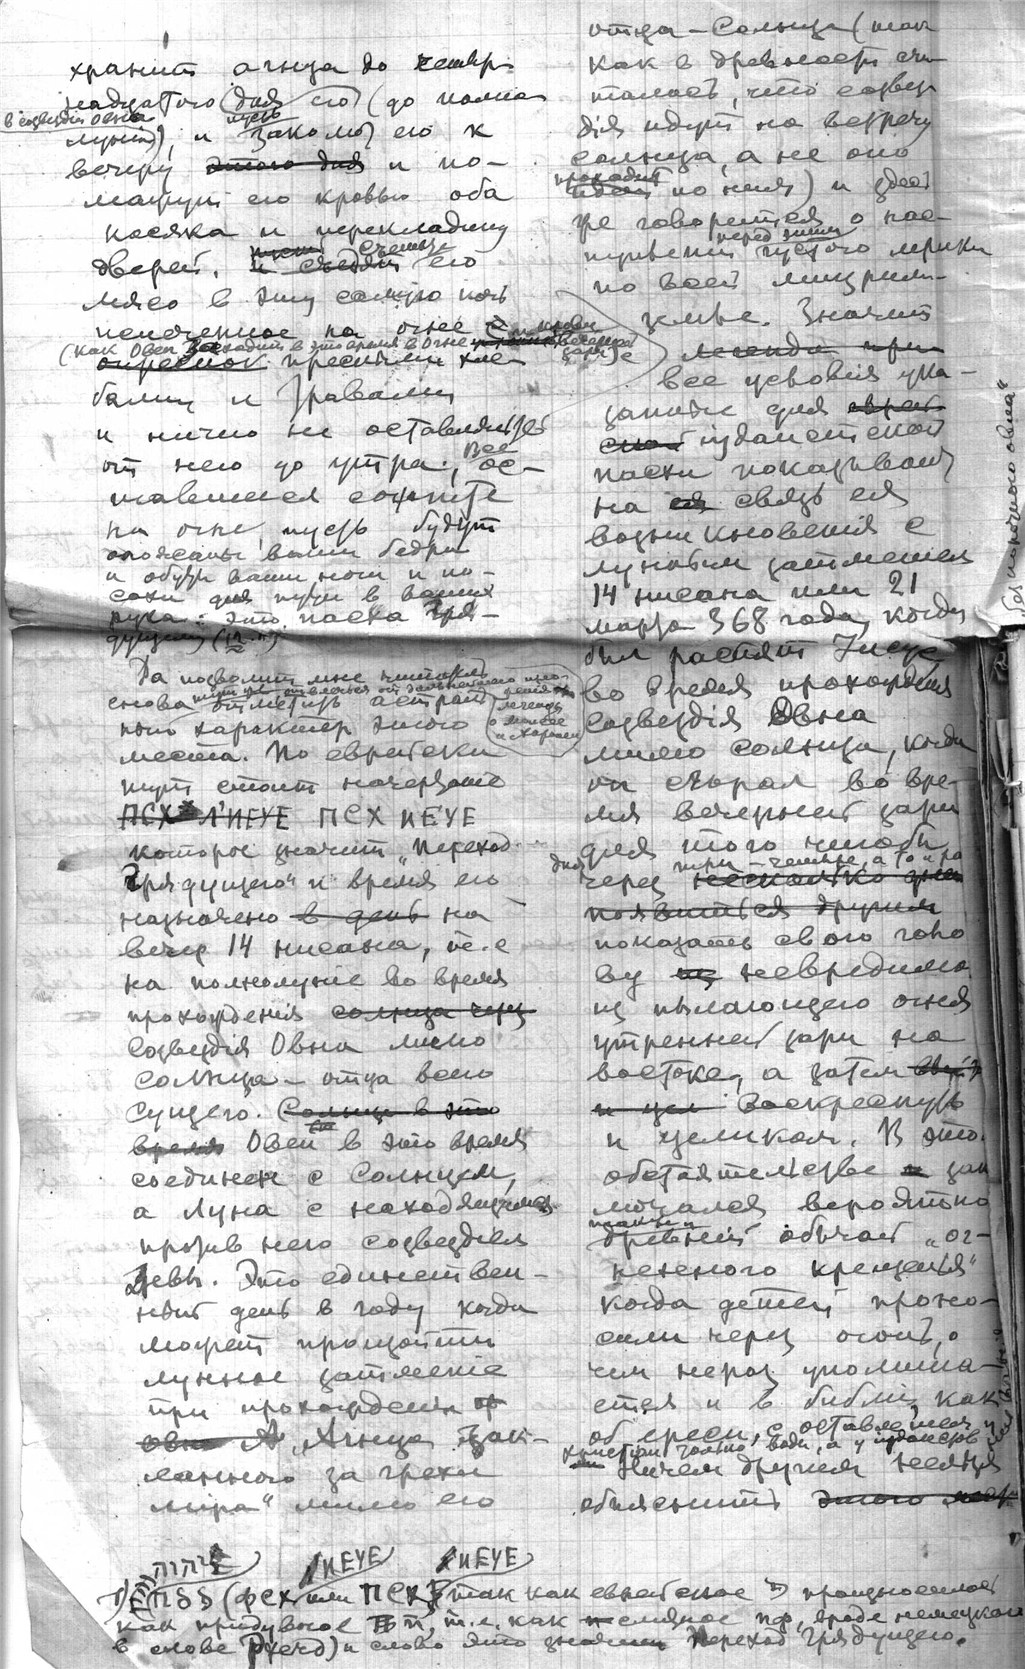 хранит агнца до четыр-
надцатого дня его (до полно-
в созвездии Овна
луния), и пусть заколют его к
вечеру этого дня и по-
мажут его кровью оба
косяка и перекладину
дверей. пусть съедят его
мясо в эту самую ночь
испеченное на огне
(как Овен восходит в это время в огне вечерней зари)
опреснок пресными хле-
бами и травами
и ничего не оставляйте
от него до утра; все ос-
тавшееся сожгите
на огне, пусть будут
опоясаны ваши бедра
и обувь ваши ноги и по-
сохи для пути в ваших
руках: это пасха Гря-
дущему (12. 11)
Да позволит мне читатель
снова отметить астраль-
легенды
о Моисее
и Аароне
ный характер этого
места. По еврейски
тут стоит начертание
ПСХ Л'ИЕУЕ ПСХ ИЕУЕ
которое значит „Переход
Грядущего" и время его
назначено в день на
вечер 14 нисана, т. е
на полнолуние во время
прохождения солнца через
Созвездiя Овна мимо
Солнца — отца всего
сущего. Солнце в это
время Овен в это время
соединен с Солнцем,
а Луна с находящимся
против него созвездiем
Девы. Это единствен-
ный день в году когда
может произойти
лунное затмение
при прохождении
Овна А, Агнца Зак-
ланного за грехи
мiра" мимо его
отца — Солнца (так
как в древности счи-
талось, что созвез-
дiя идут на встречу
солнца, а не оно
проходит
идет по ним) и здесь
же говорится о нас-
перед этим
туплении густого мрака
по всей мицраим-
земле. Значит
легенда при
все условiя ука-
занные для еврей-
ской iудаистской
пасхи показывают
на ея связь ея
возникновенiя с
лунным затмением
14 нисана или 21
марта 368 года, когда
был распят Iисус
во время прохождения
Созвездiя Овна
мимо солнца, когда
он сгорал во вре-
мя вечерней зари
для того чтобы
дня
три — четыре, а то и
через несколько дней
появиться другим
показать свою голо-
ву из невредимо
из пылающего огня
утренней зари на
востоке, а затем
и цел воскреснуть
и целиком. В этом
обстоятельстве зак-
лючался вероятно
древний обычай „ог-
ненного крещенья"
когда детей проно-
сили через огонь, о
чем нераз упомина-
ется и в библiи, как
об ереси, оставшейся у
христиан только вода, а у iудаистов
Ничем другим нельзя
объяснить этого
„без порочного овна"
ИЕУЕ ИЕУЕ
(ФСХ или ПСХ) так как еврейское произносилось
как придувное П, т. е. как слияное пф, вроде немецкого
в слове Pferd) и слово это значит Переход Грядущего.